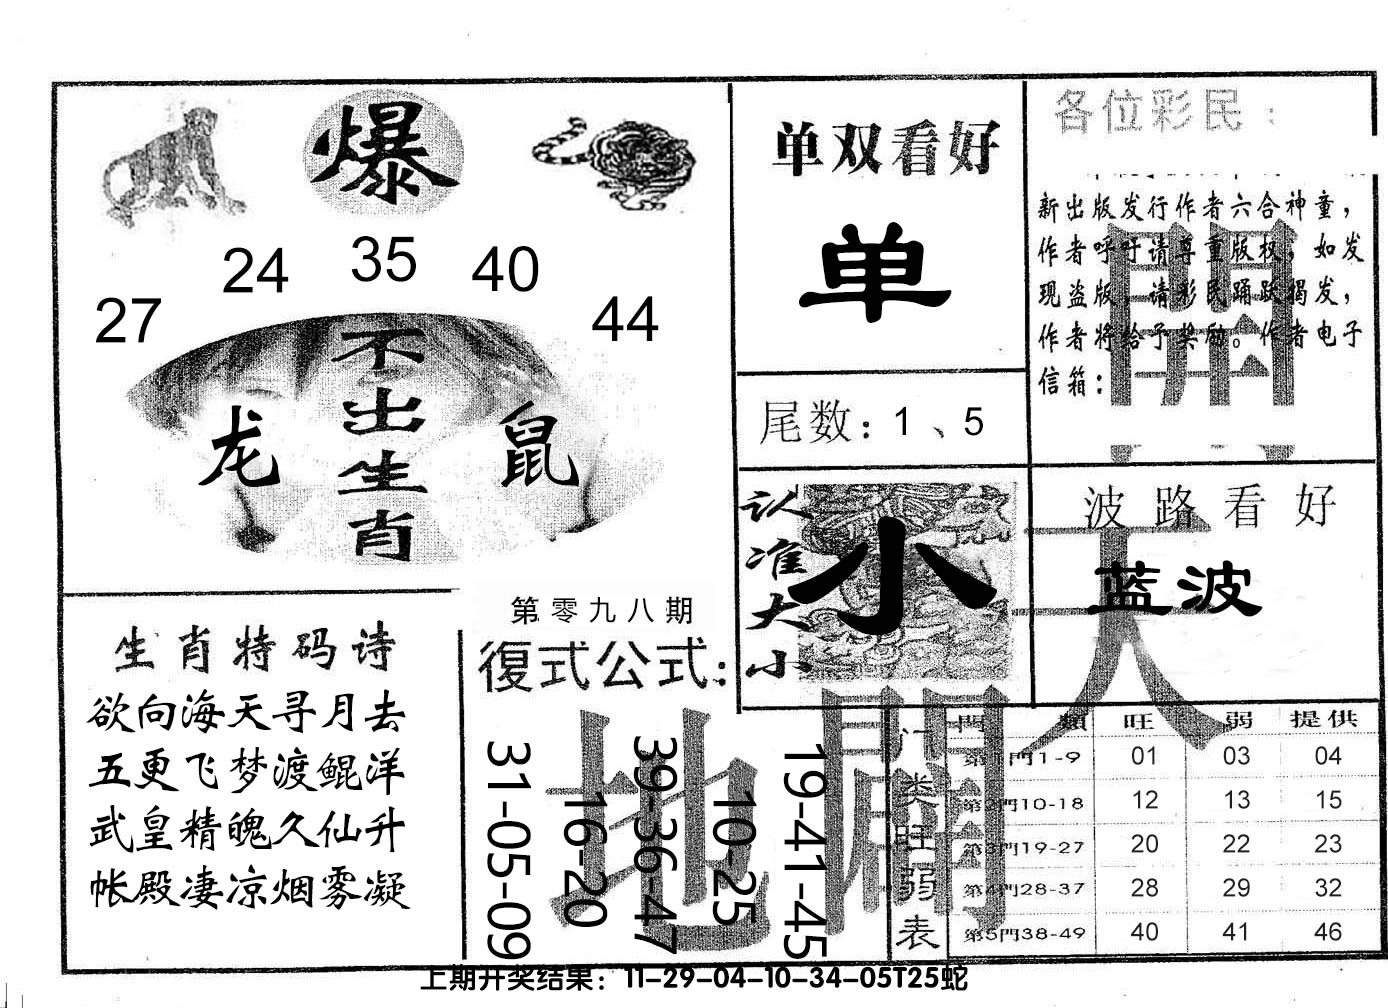 爆
24 35 40
27 44
不出生肖
龙 鼠
单双看好
单
尾数：1、5
各位彩民：
新出版发行作者六合神童，
作者呼吁请尊重版权，如发
现盗版，请彩民踊跃揭发，
作者将给予奖励。作者电子
信箱：
開
认准大小
小
波路看好
蓝波
天
生肖特码诗
欲向海天寻月去
五更飞梦渡鲲洋
武皇精魄久仙升
帐殿凄凉烟雾凝
第零九八期
復式公式：
31-05-09
16-20
39-36-47
10-25
19-41-45
地
門类旺弱表
門 類 旺 弱 提供
第1門1-9 01 03 04
第2門10-18 12 13 15
第3門19-27 20 22 23
第4門28-37 28 29 32
第5門38-49 40 41 46
上期开奖结果：11-29-04-10-34-05T25蛇